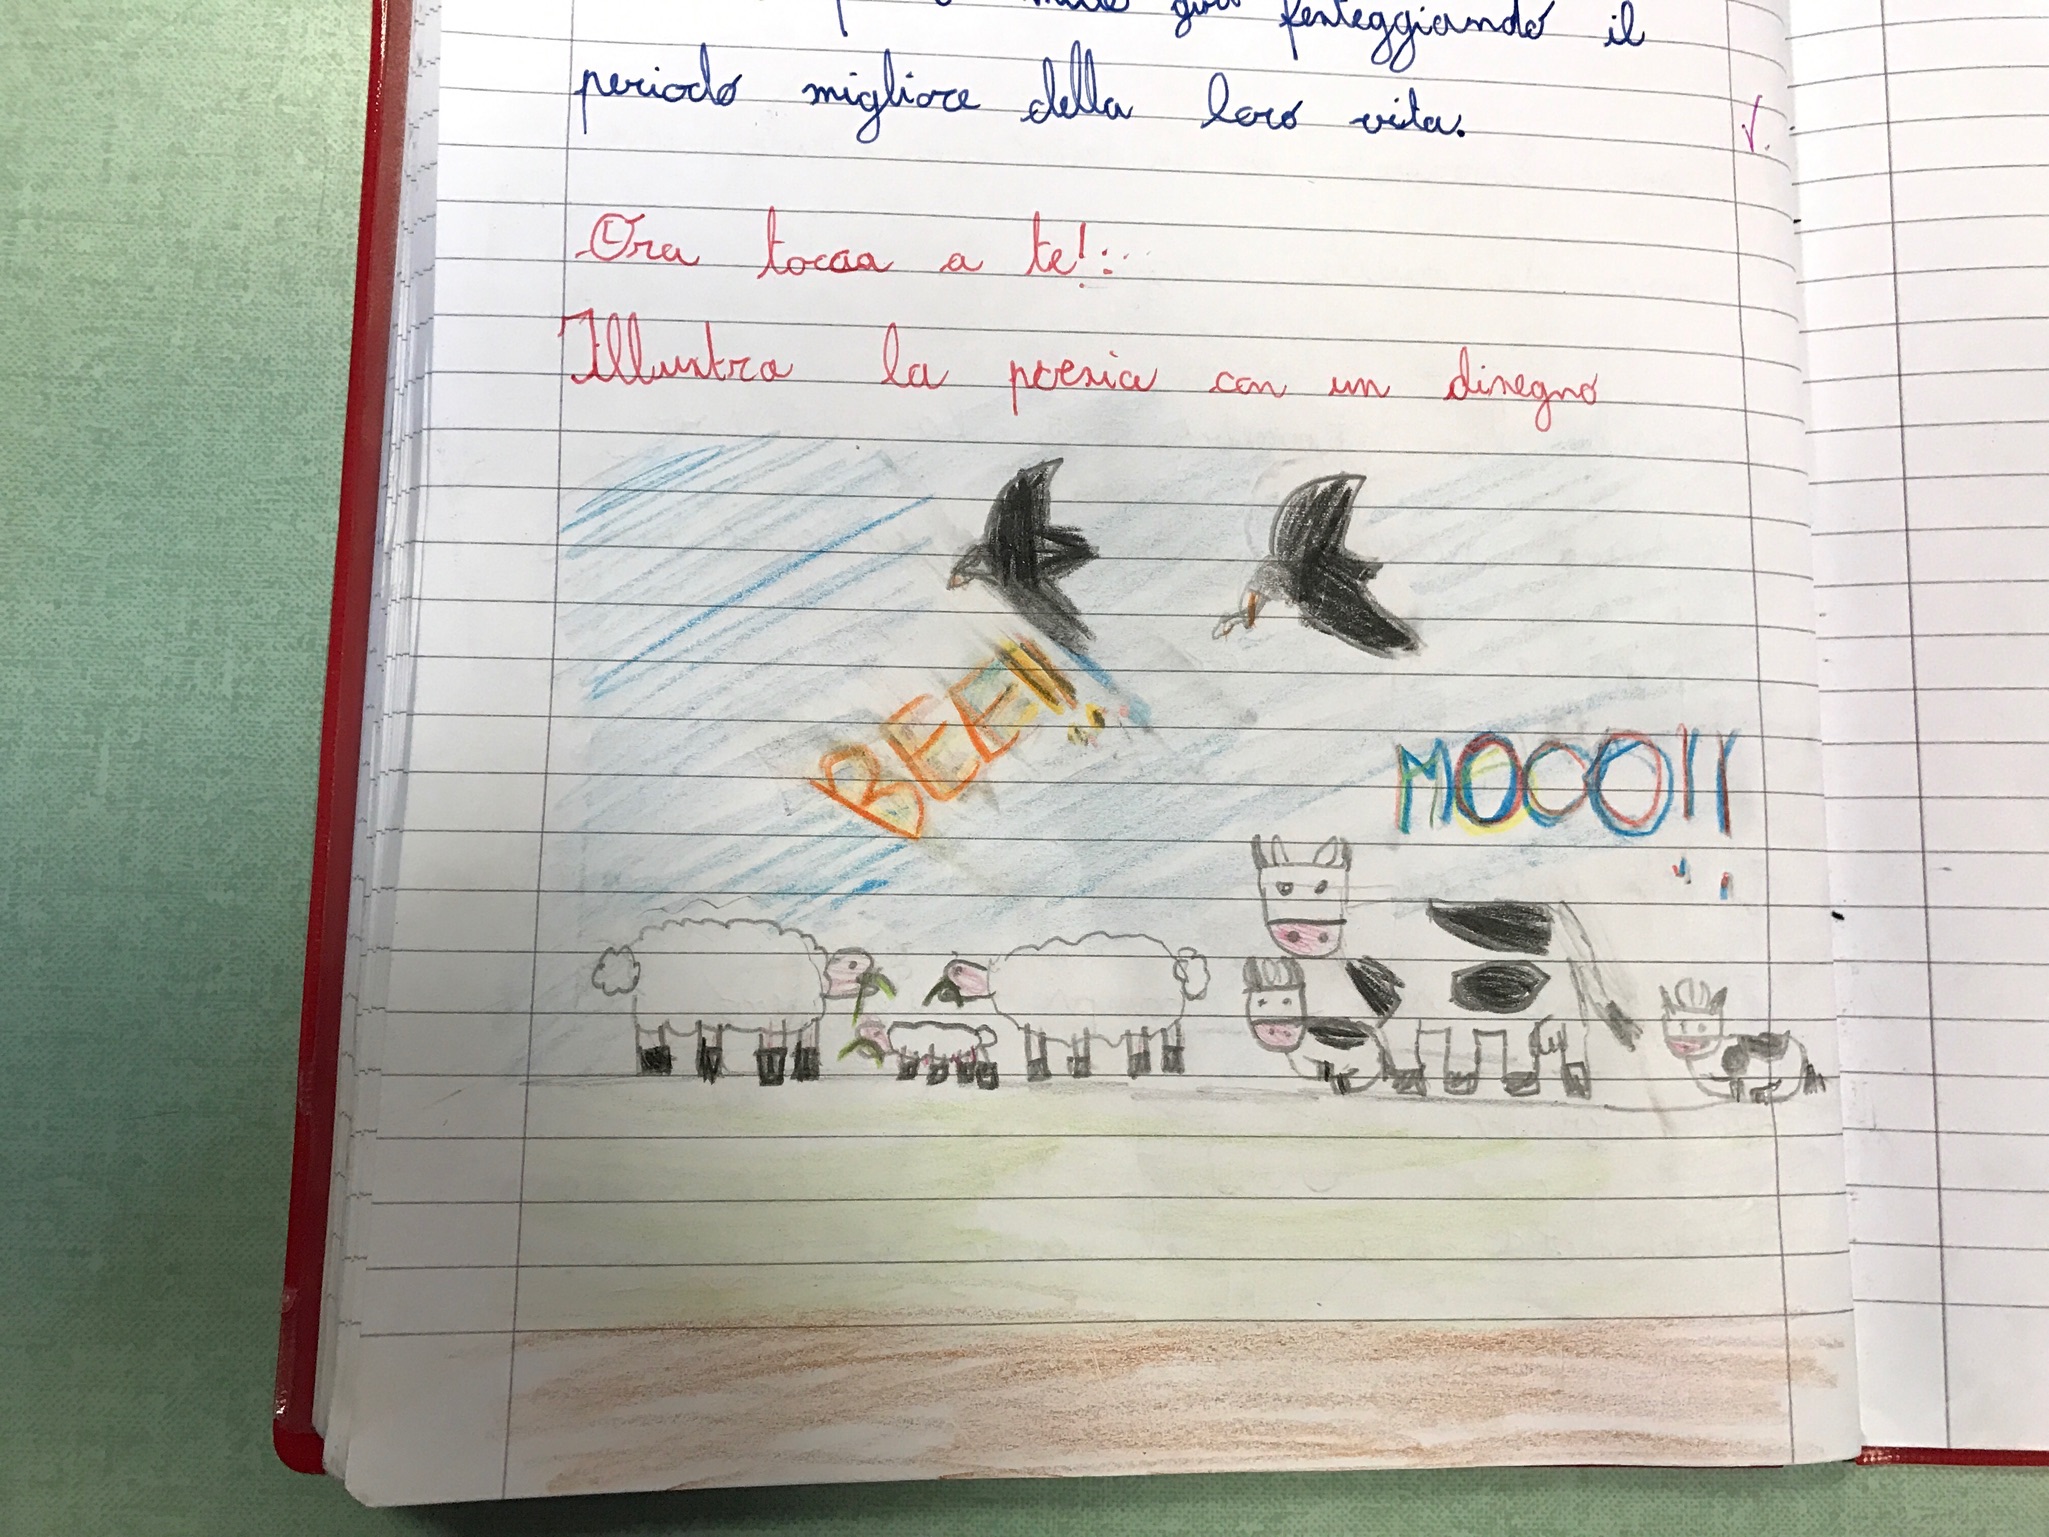 festeggiando il
periodo migliore della loro vita.
Ora tocca a te!:
Illustra la poesia con un disegno
BEE!!
MOOO!!